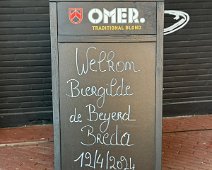 OMER.
TRADITIONAL BLOND
Welkom
Biergilde
de Beyerd
Breda
12/4/2024